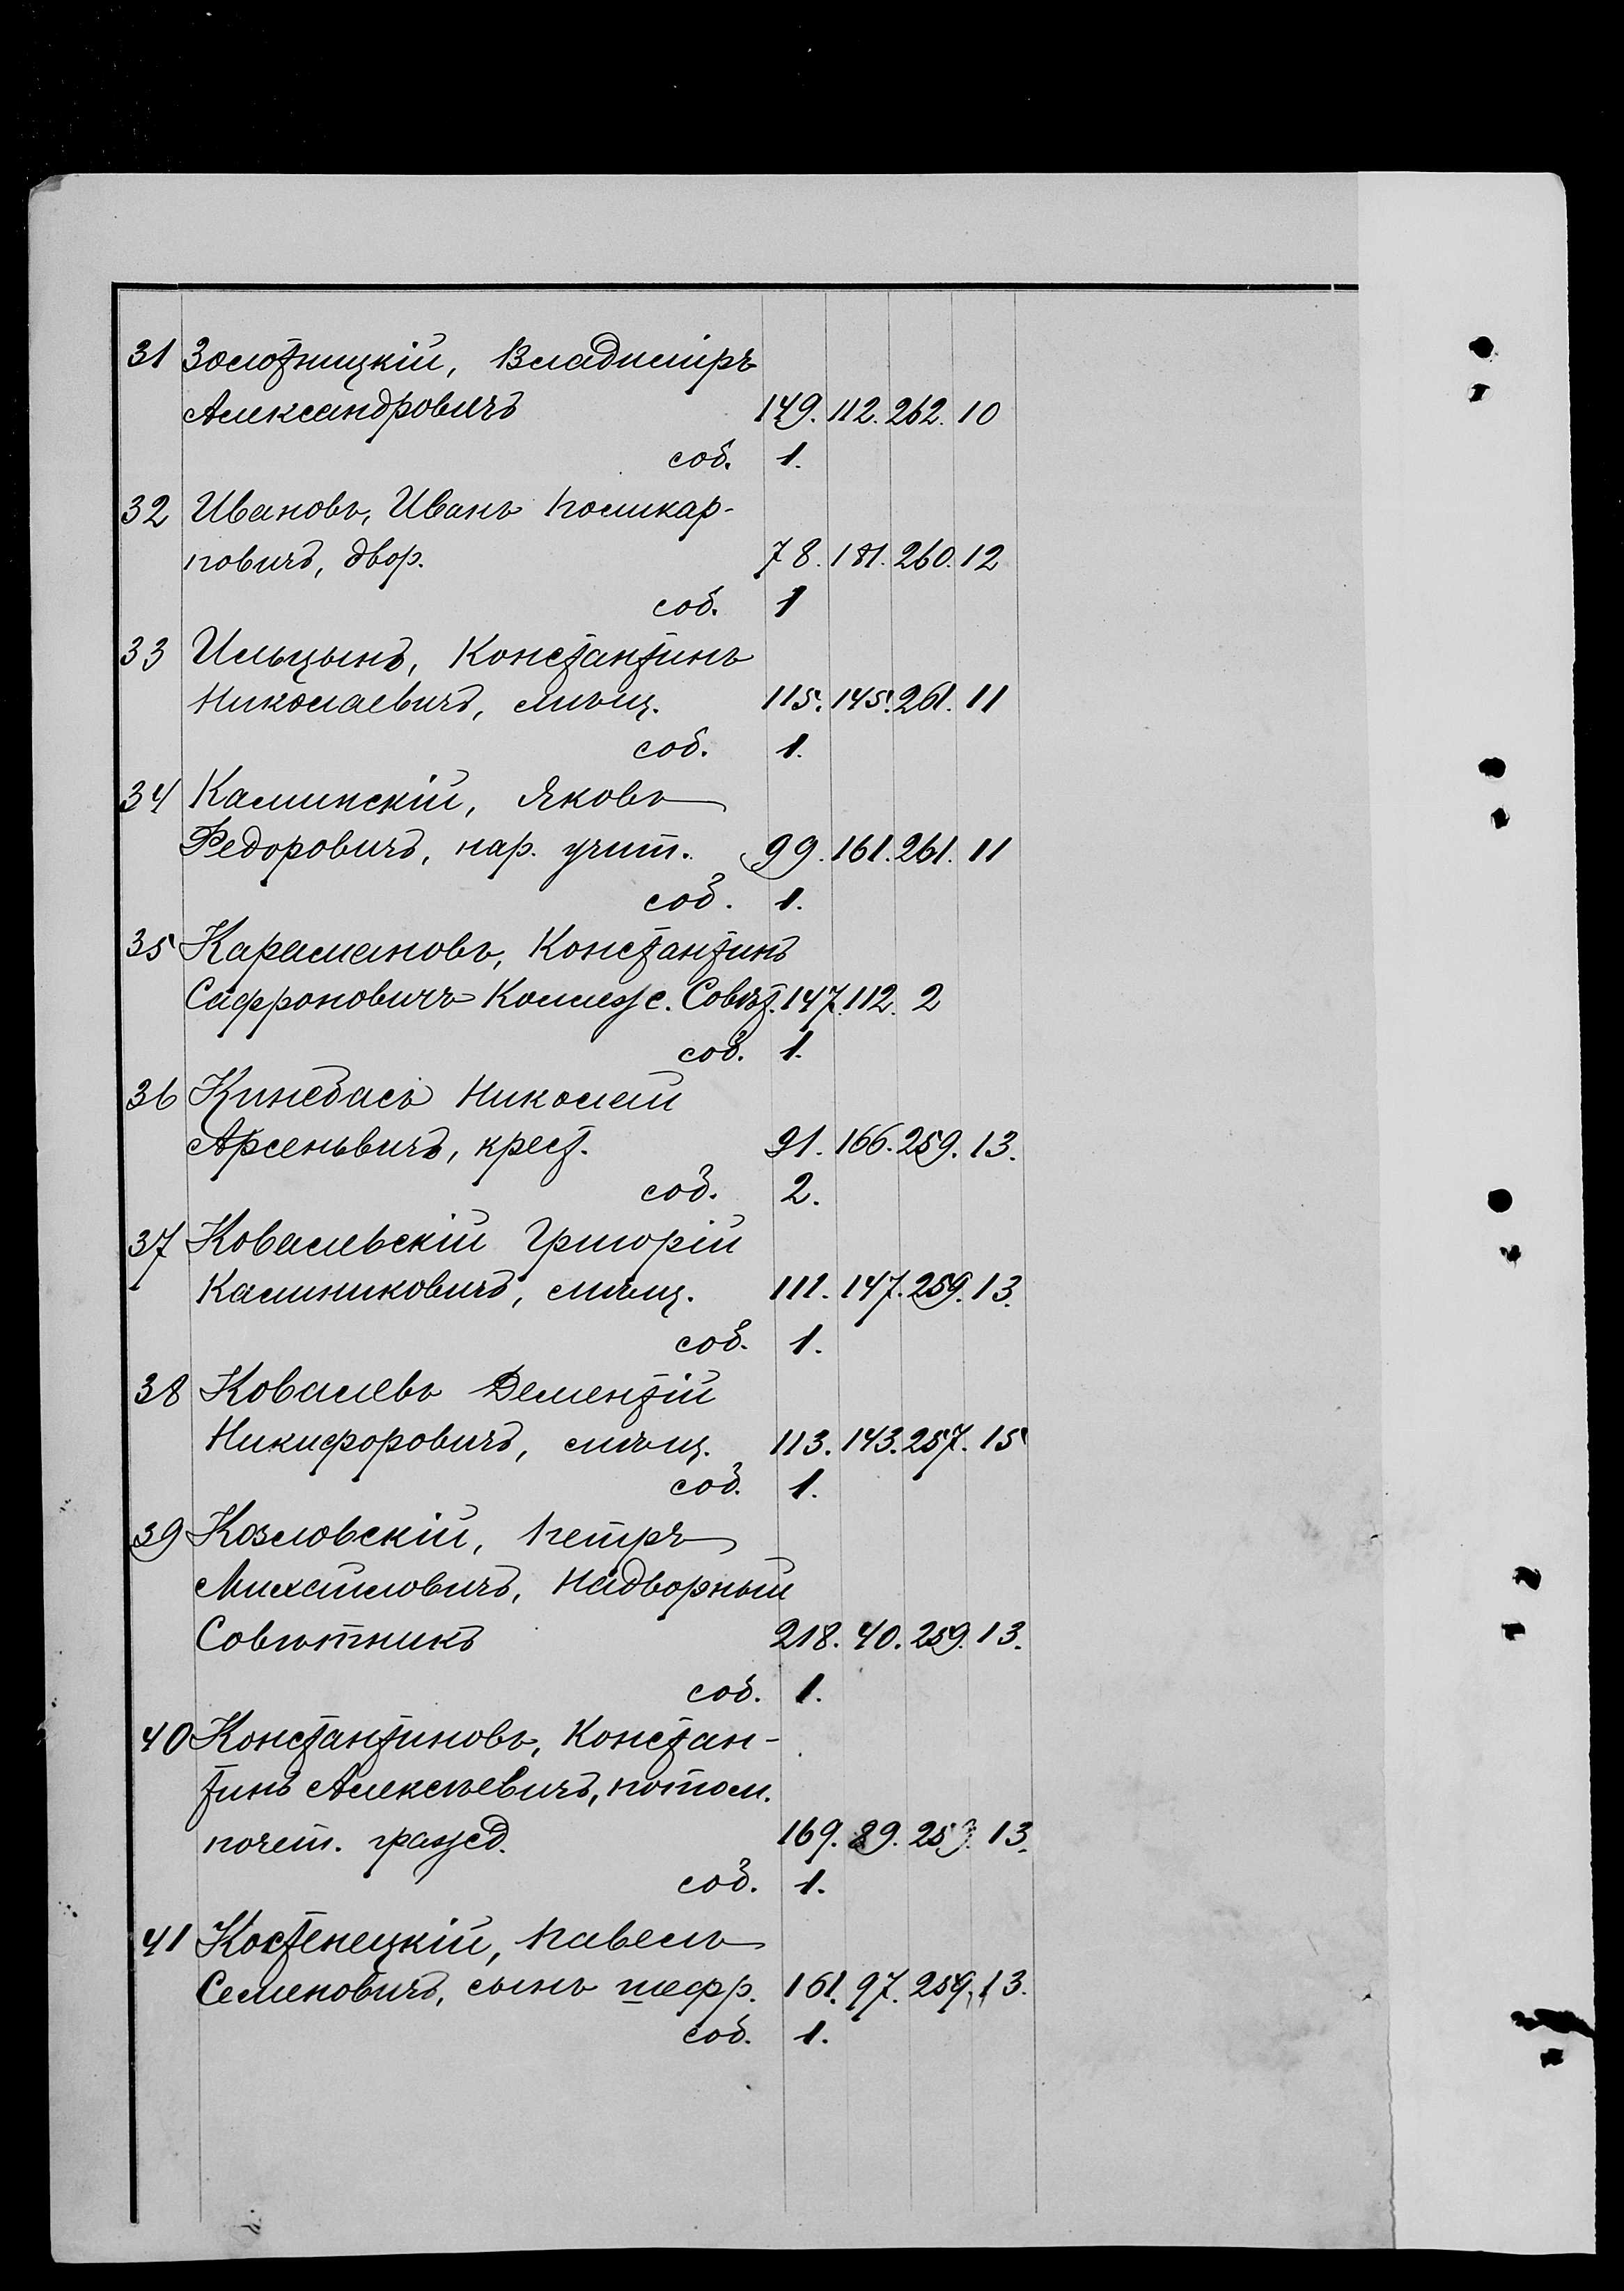 31 Золотницкій, Владиміръ
Александровичъ 149. 112. 262. 10
соб. 1.
32 Ивановъ, Иванъ Поликар-
повичъ, двор. 78. 181. 260. 12
соб. 1
33 Ильцынъ, Константинъ
Николаевичъ, мѣщ. 115. 145. 261. 11
соб. 1.
34 Калинскій, Яковъ
Федоровичъ, нар. учит. 99. 161. 261. 11
соб. 1.
35 Карамановъ, Константинъ
Сафроновичъ Коллежс. Совѣт. 147. 112. 2
соб. 1.
36 Кинебасъ Николай
Арсеньвичъ, крест. 91. 166. 259. 13.
соб. 2.
37 Ковалевскій Григорій
Калиниковичъ, мѣщ. 111. 147. 259. 13.
соб. 1.
38 Ковалевъ Дементій
Никифоровичъ, мѣщ. 113. 143. 257. 15
соб. 1.
39 Козловскій, Петръ
Михайловичъ, Надворный
Совѣтникъ 218. 40. 259. 13.
соб. 1.
40 Константиновъ, Констан-
тинъ Алексѣевичъ, потом.
почет. гражд. 169. 89. 259. 13.
соб. 1.
41 Костенецкій, Павелъ
Семеновичъ, сынъ шефр. 161. 97. 259. 13.
соб. 1.